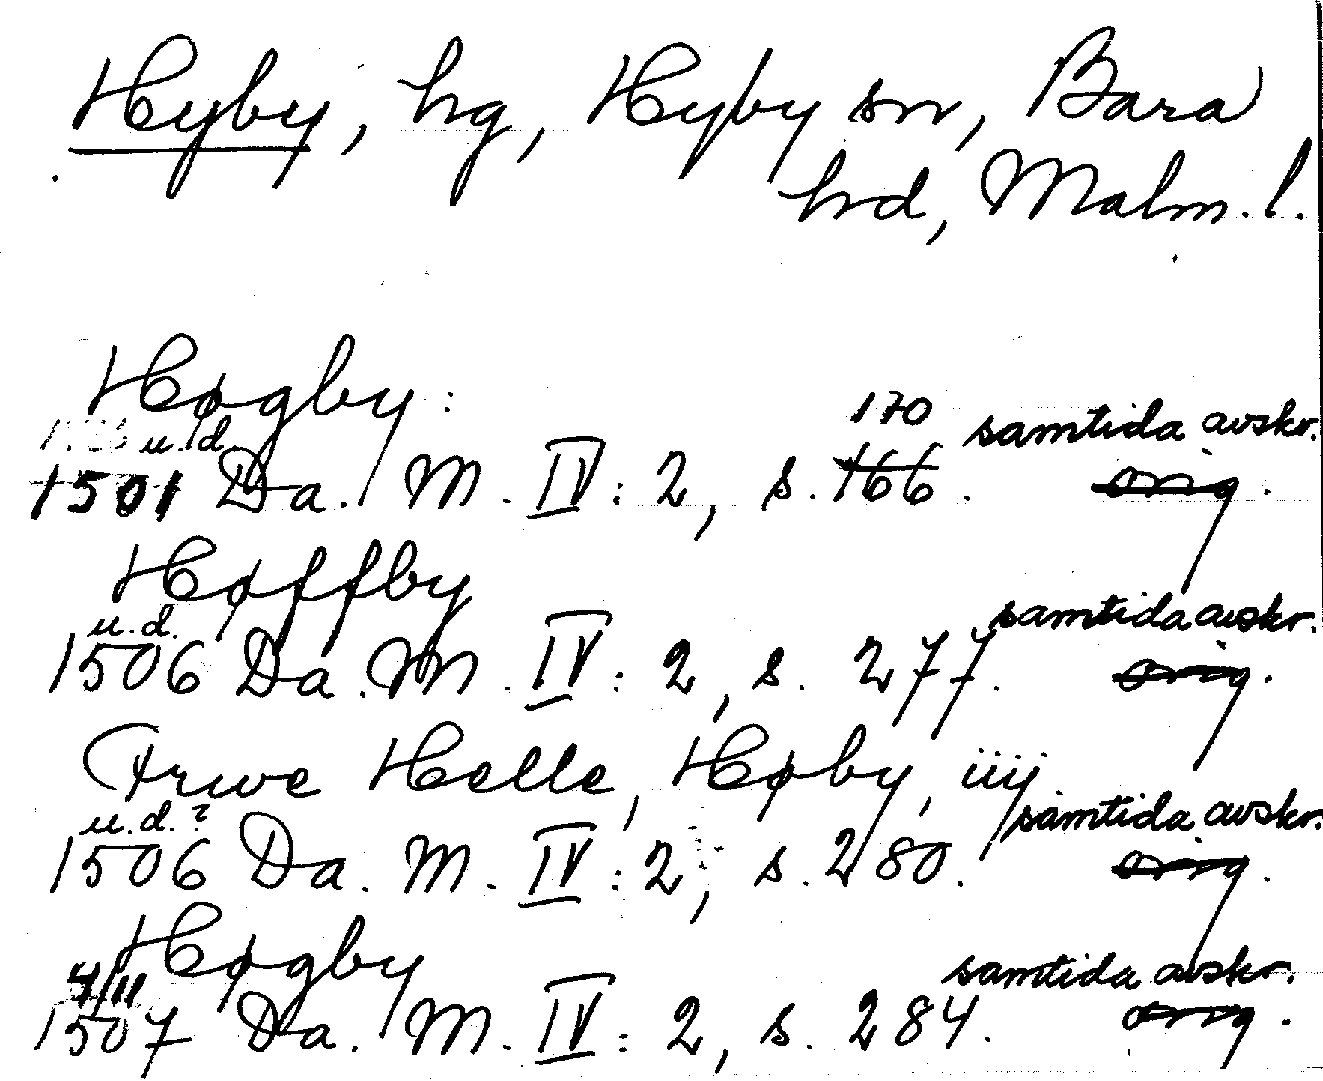 Hyby, hg, Hyby sn, Bara
hd, Malm. l.
Høgby:
u. d. 170 samtida avskr.
1501 Da. M. IV: 2, s. 166. orig.
Høffby
u. d. samtida avskr.
1506 Da. M. IV: 2, s. 277. orig.
Frwe Helle, Høby, iiij
u. d. ? samtida avskr.
1506 Da. M. IV: 2, s. 280. orig.
Høgby
4/11 samtida avskr.
1507 Da. M. IV: 2, s. 284. orig.